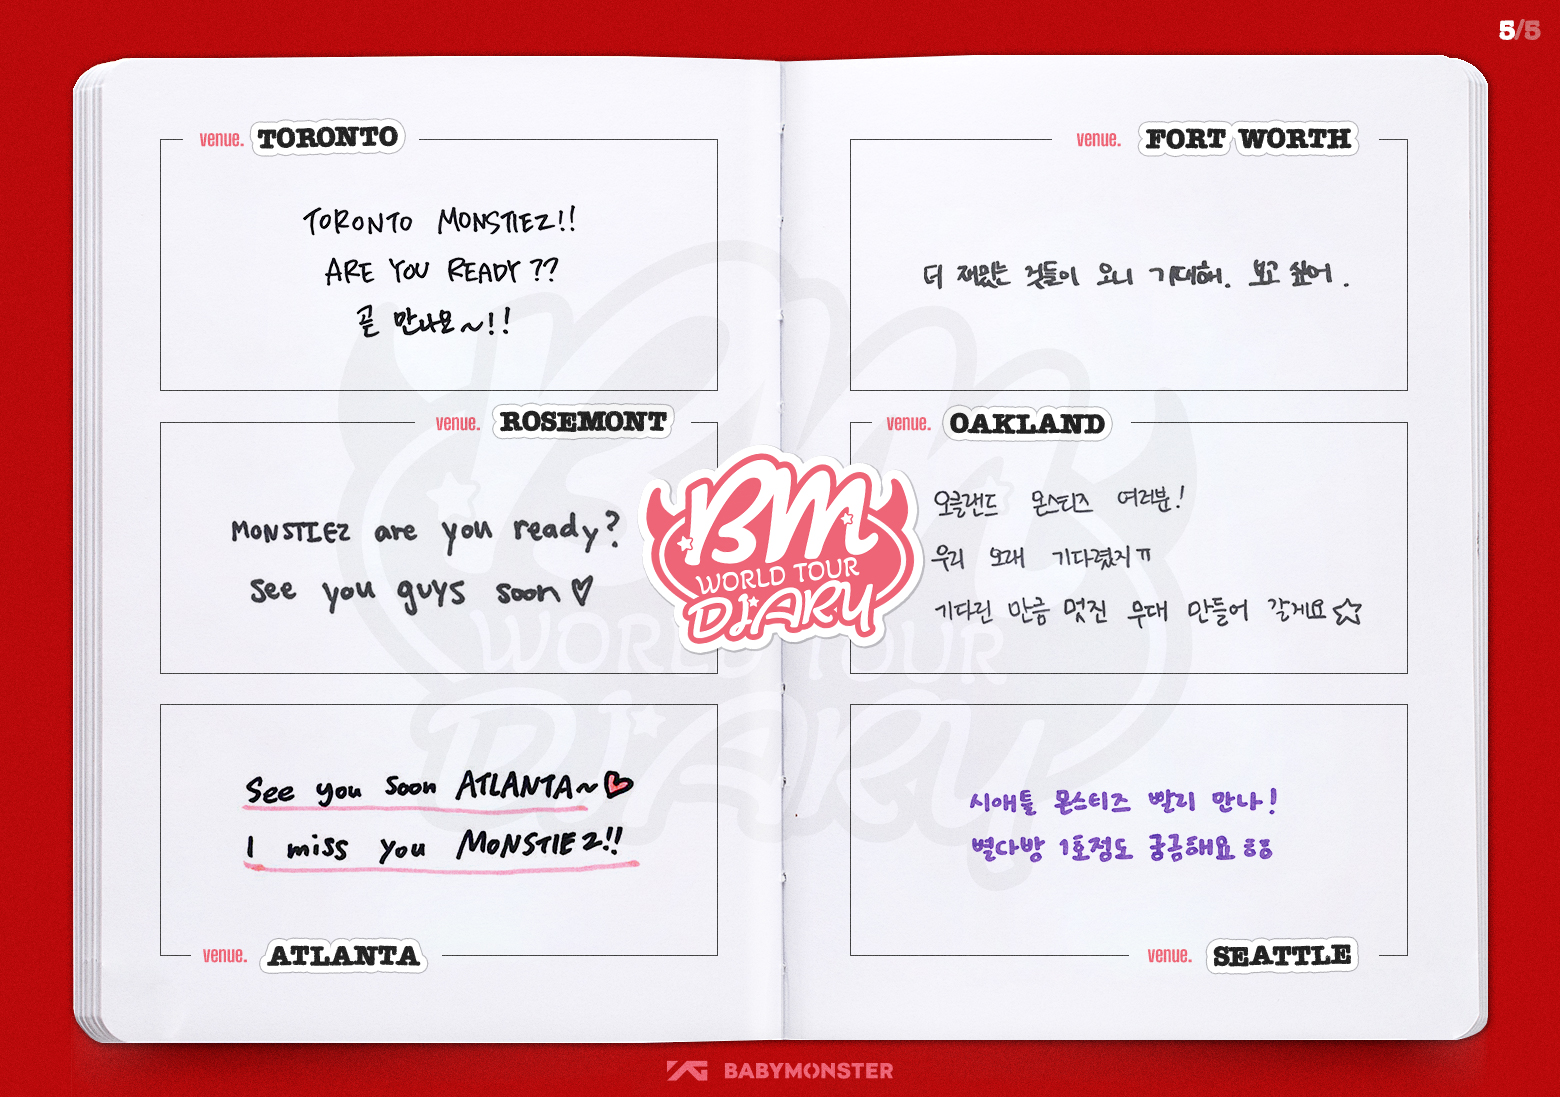 5/5
venue. TORONTO
TORONTO MONSTIEZ!!
ARE YOU READY??
곧 만나요~!!
venue. ROSEMONT
MONSTIEZ are you ready?
See you guys soon♡
See you soon ATLANTA~♡
I miss you MONSTIEZ!!
venue. ATLANTA
BM
WORLD TOUR
DIARY
venue. FORT WORTH
더 재밌는 것들이 오니 기대해. 보고 싶어.
venue. OAKLAND
오클랜드 몬스티즈 여러분!
우리 오래 기다렸지ㅠ
기다린 만큼 멋진 무대 만들어 갈게요☆
시애틀 몬스티즈 빨리 만나!
별다방 1호점도 궁금해요 ㅎㅎ
venue. SEATTLE
BM
WORLD TOUR
DIARY
YG BABYMONSTER